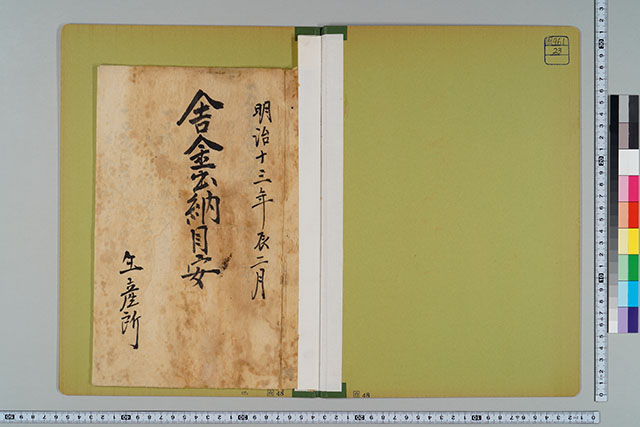 明治十三年辰二月
舎金公納目安
生産所
23